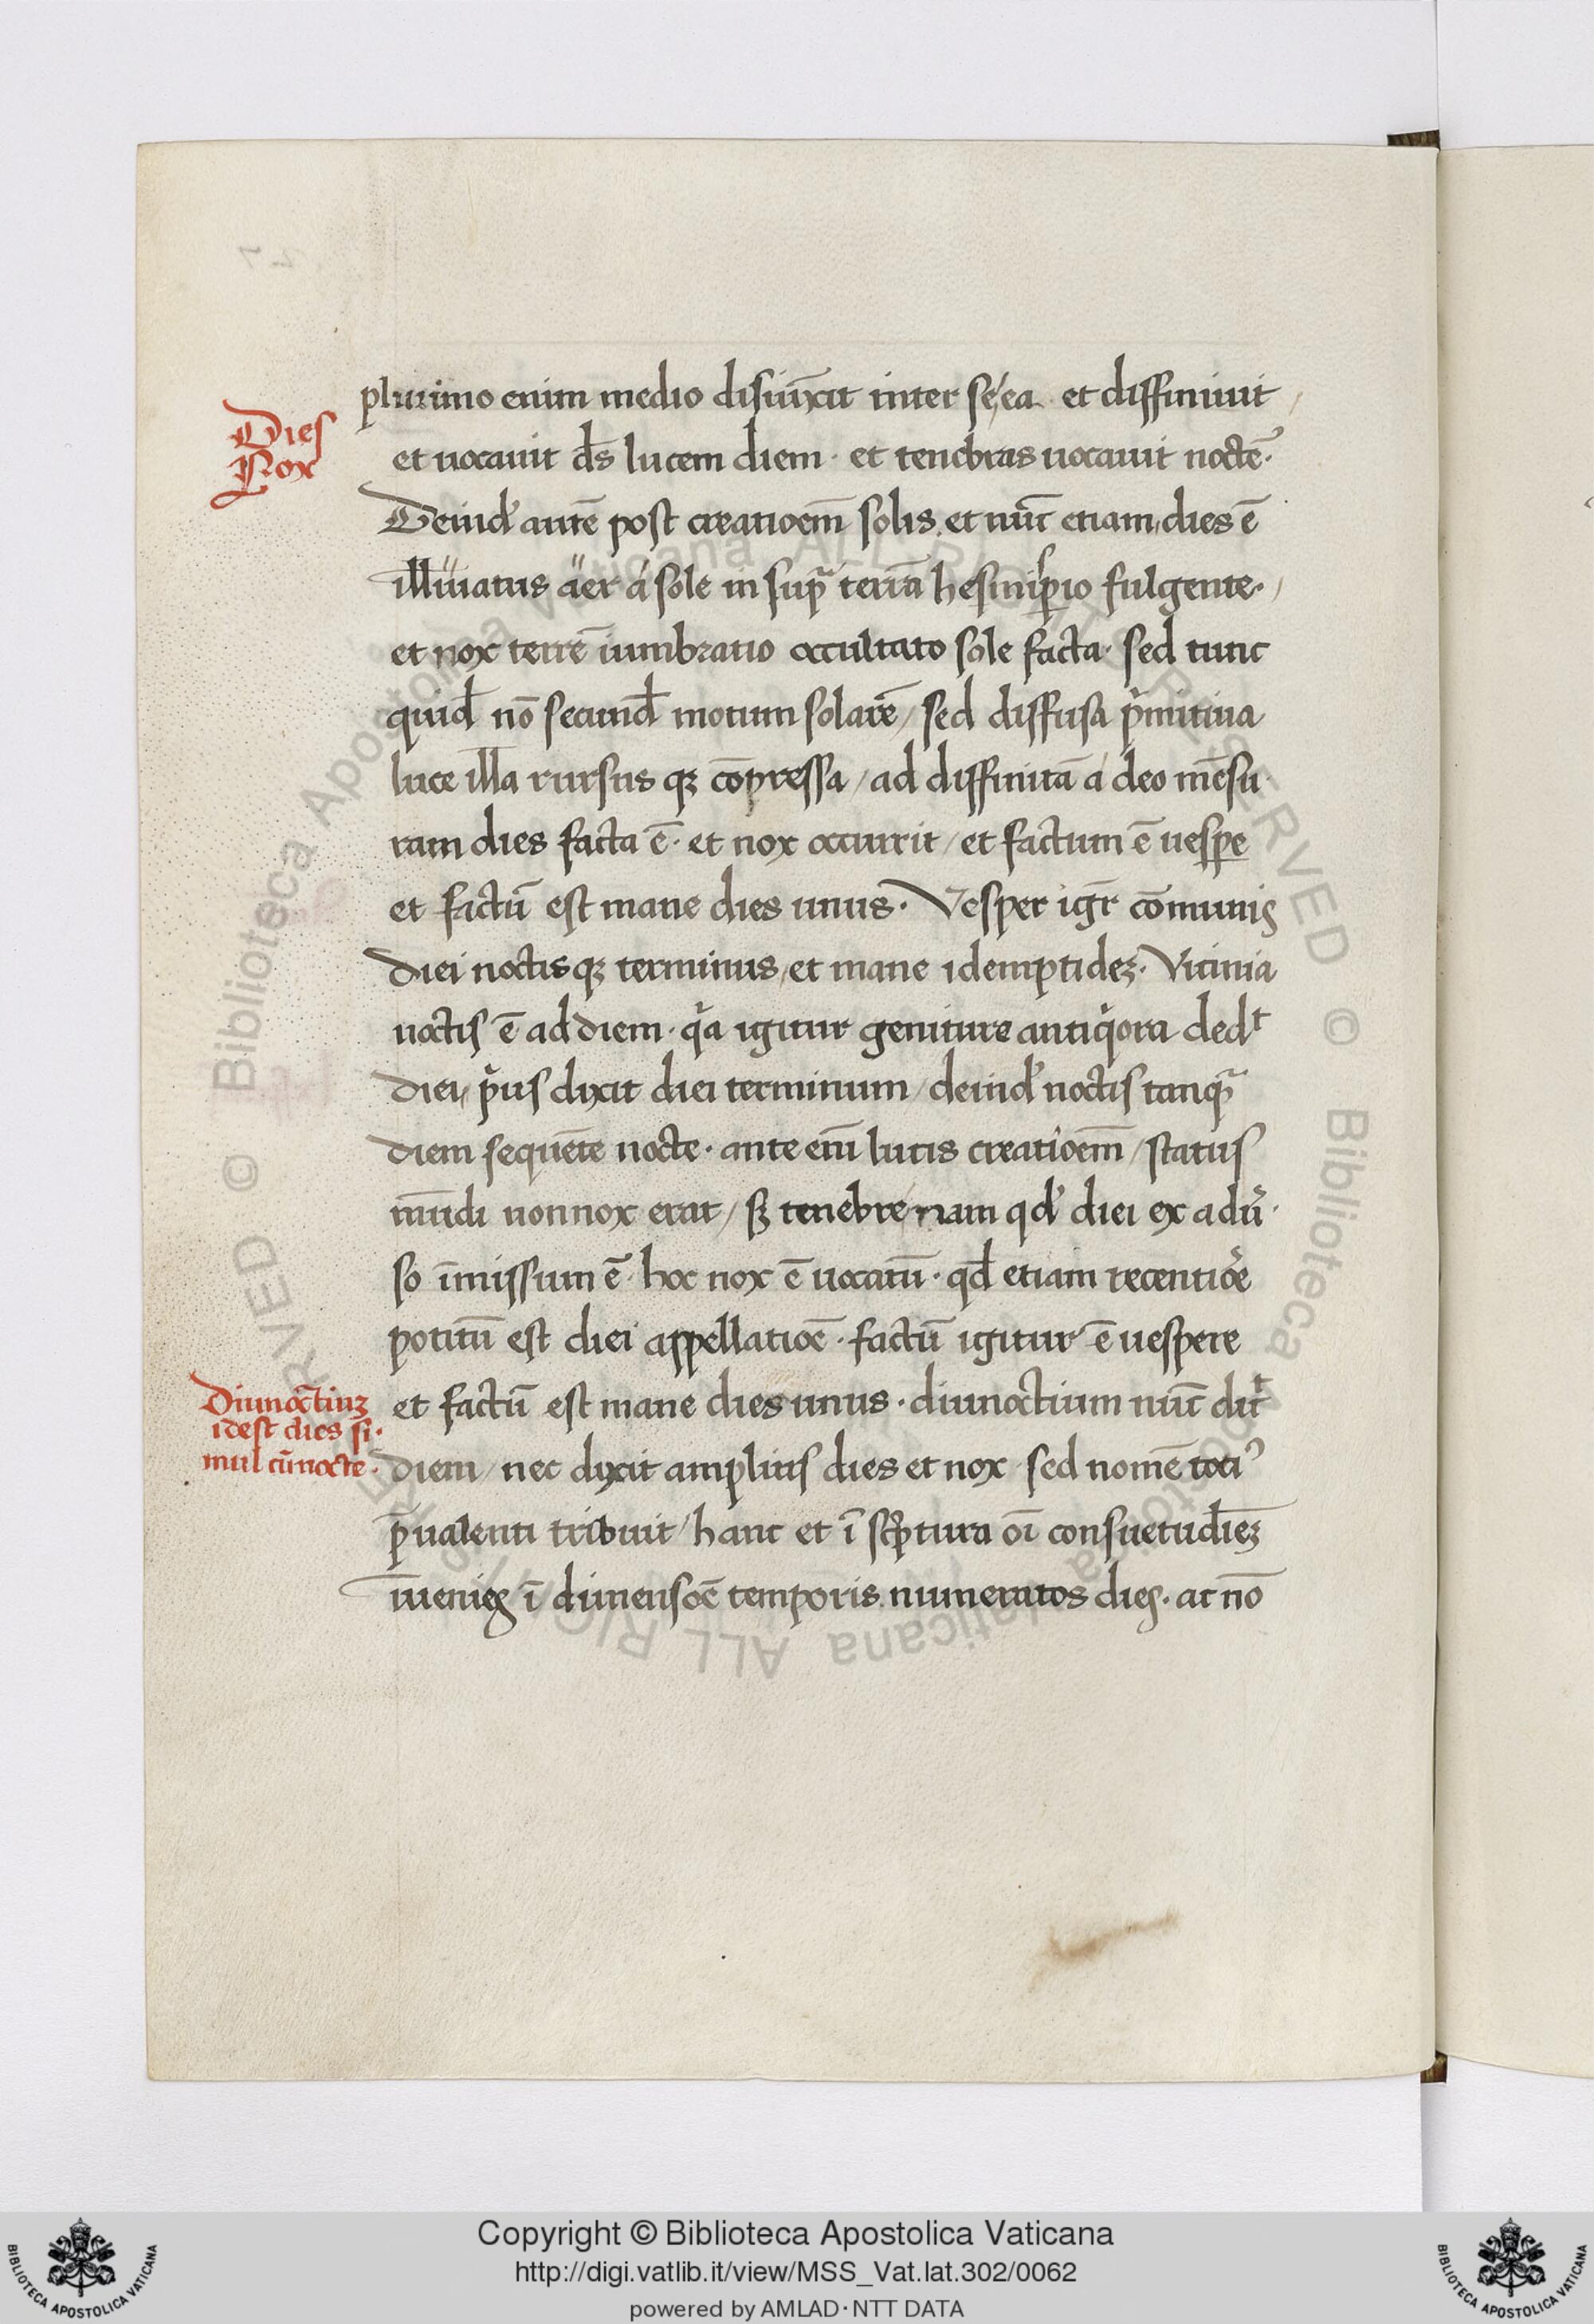 plurimo enim medio disiūxit inter se/ea et diffiniuit
Dies
Nox
et uocauit ds̄ lucem diem · et tenebras uocauit noctē·
Deind' autē post creatioem̄ solis, et nūc etiam, dies ē
illūiatus äer á sole in supᵃ terrā hesmiperio fulgente·
et nox terrē iumbratio occultato sole facta· sed tunc
quid̄ nō secund̄ motum solarē / sed diffusa pⁱmitiua
luce illa rursus qꝫ cōpressa / ad diffinitā a deo mēsu·
ram dies facta ē· et nox occurrit / et factum ē uespe
et factū est mane dies unus · Vesper igr̄ cōmunis
diei noctis qꝫ terminus / et mane idemptideꝫ · Vicinia
noctis ē ad diem · qⁱa igitur geniture antiqⁱora dedᵗ
diei, pⁱus dixit diei terminum / deind' noctis tanqᵃ
diem sequētē nocte · ante eniī lucis creatioem̄ / status
mūdi non nox erat / sꝫ tenebre nam qd' diei ex aduʳ·
so īmissum ē · hoc nox ē uocatū · qd̄ etiam recentiore
potitū est diei appellatioē · factū igitur ē uespere
et factū est mane dies unus · diunoctium nūc dicᵗ
Diunoctiuꝫ
idest dies si·
mul cūnocte ·
diem / nec dixit amplius dies et nox · sed nomē toti'
p̄ualenti tribuit / hanc et ī scⁱptura oī consuetud̄ieꝫ
īuenies ī dimensoē temporis numeratos dies · at nō
Copyright © Biblioteca Apostolica Vaticana
http://digi.vatlib.it/view/MSS_Vat.lat.302/0062
powered by AMLAD · NTT DATA
BIBLIOTECA APOSTOLICA VATICANA
BIBLIOTECA APOSTOLICA VATICANA